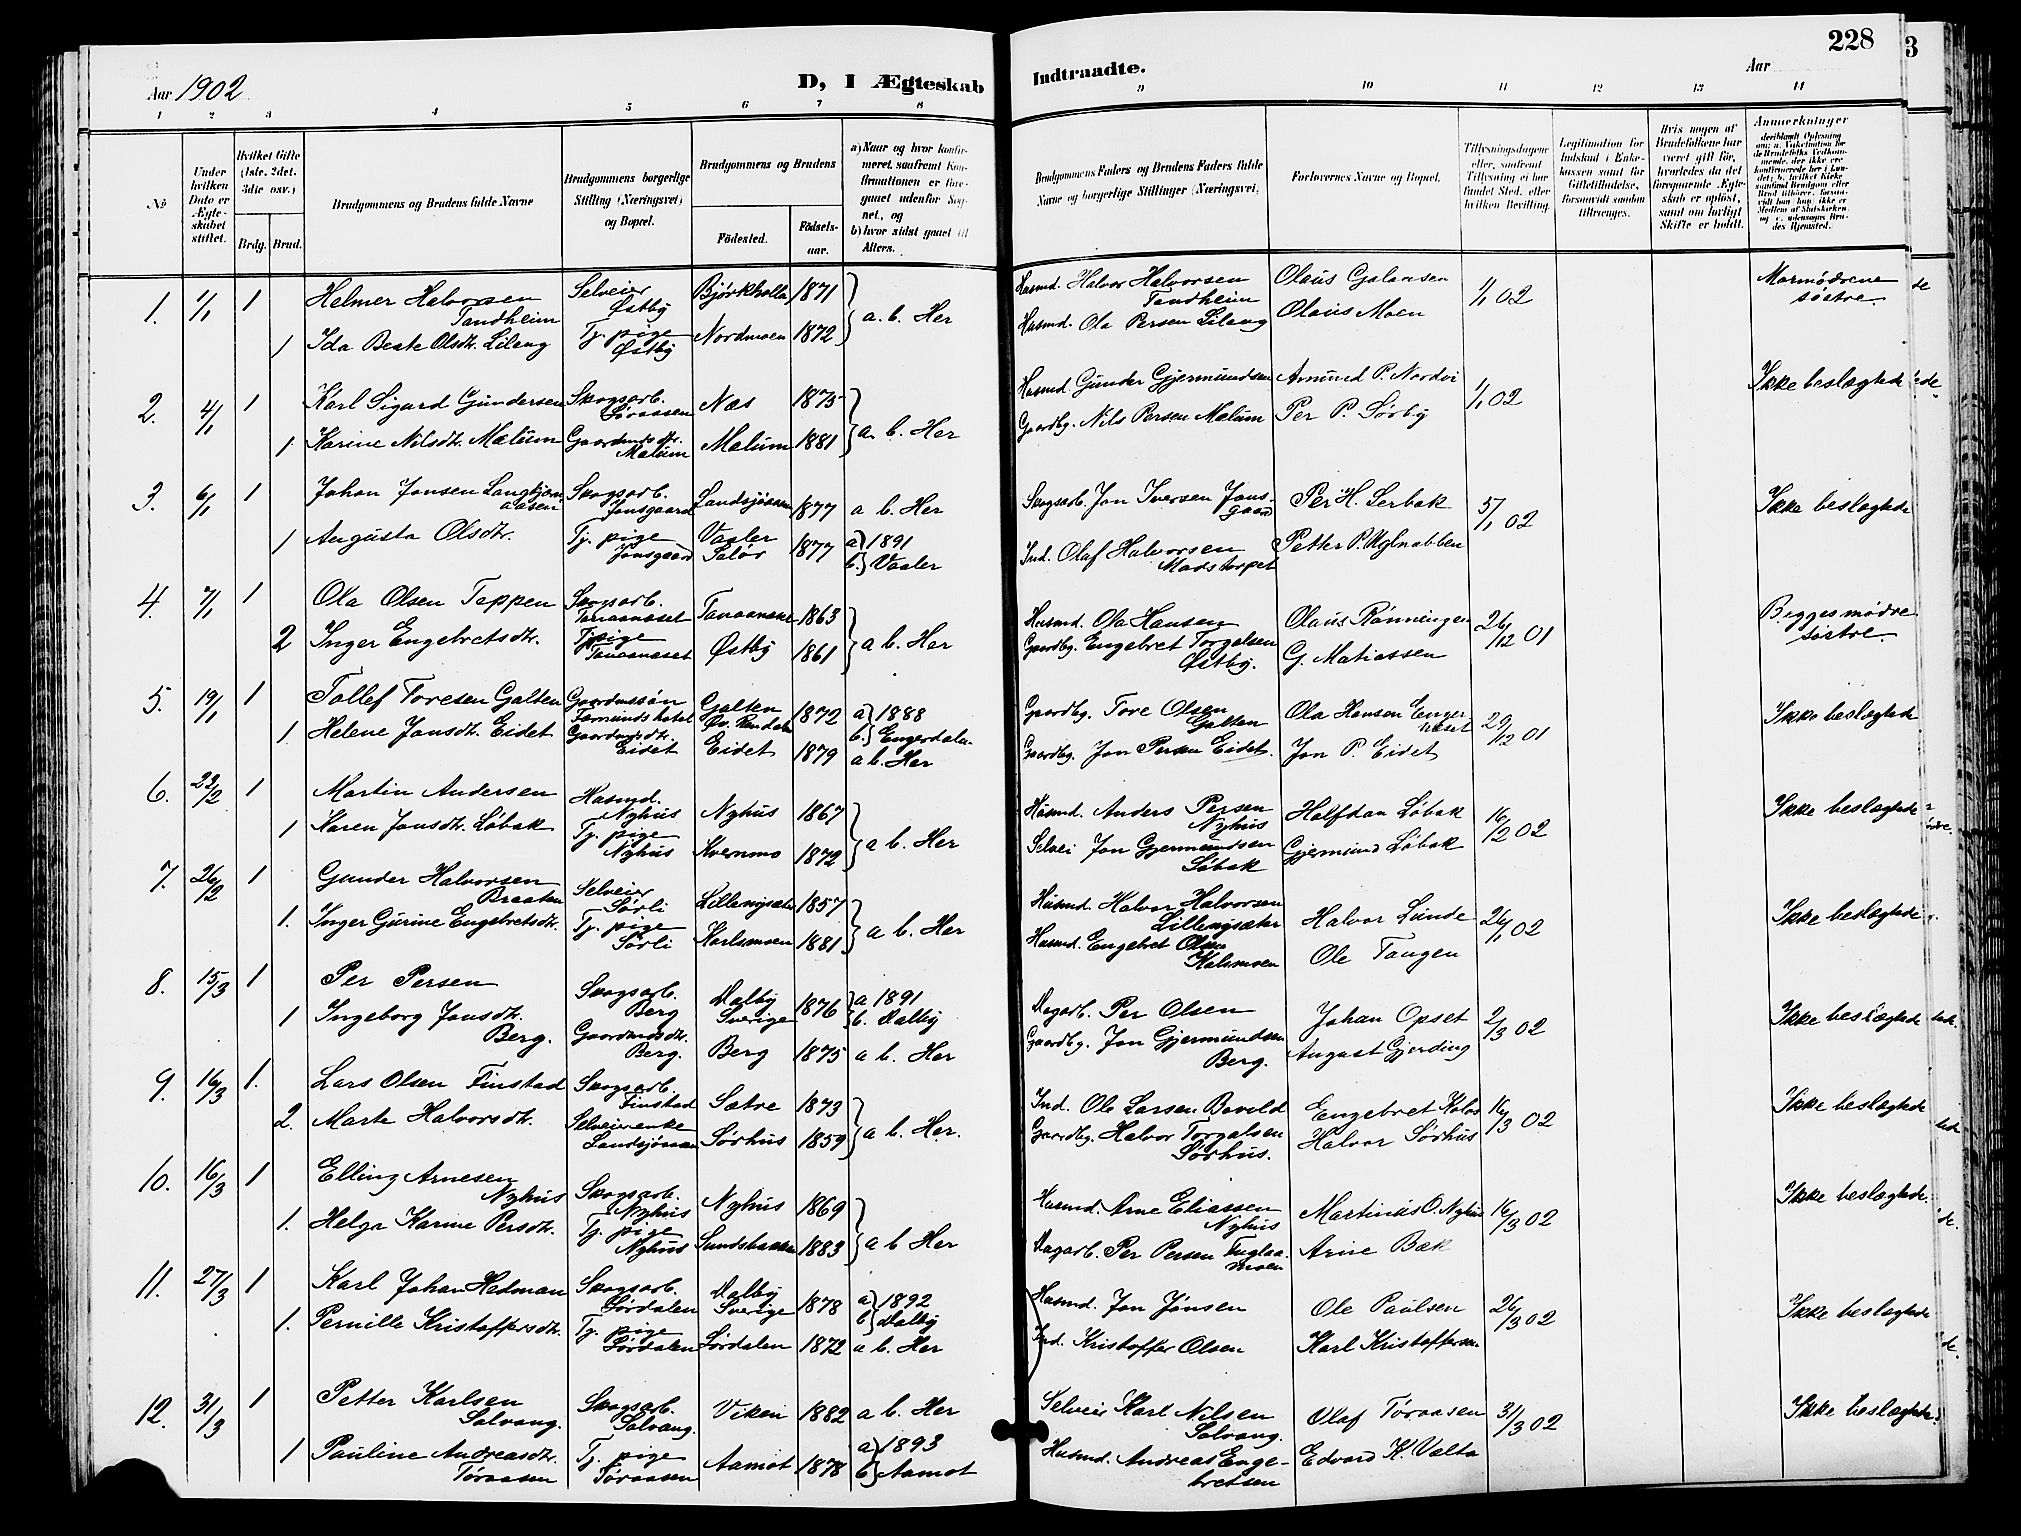 228
3
Aar 1902
D, I Ægteskab
Indtraadte.
Aar
1 2 3 4 5 6 7 8 9 10 11 12 13 14
No
Under hvilken Dato er Ægteskabet stiftet.
Hvilket Gifte (1ste, 2det, 3die osv.)
Brdg. Brud.
Brudgommens og Brudens fulde Navne
Brudgommens borgerlige Stilling (Næringsvei) og Bopæl.
Brudgommens og Brudens
Födested. Födsels-aar.
a) Naar og hvor konfirmeret, saafremt Konfirmationen er foregaaet udenfor Sognet, og
b) hvor sidst gaaet til Alters.
Brudgommens Faders og Brudens Faders fulde Navne og borgerlige Stillinger (Næringsvei)
Forlovernes Navne og Bopæl.
Tillysningsdagene eller, saafremt Tillysning ei har fundet Sted, efter hvilken Bevilling.
Legitimation for Indskud i Enkekassen samt for Giftetilladelse, forsaavidt saadan tiltrænges.
Hvis nogen af Brudefolkene har været gift før, hvorledes da det foregaaende Ægteskab er opløst, samt om lovligt Skifte er holdt.
Anmerkninger
1. 1/1 1 Helmer Halvorsen Tandheim Selveier Østby Bjørkholla 1871
1 Ida Beate Olsdtr. Lileng Tj. pige Østby Nordmoen 1872 a. b. Her
Husmd. Halvor Halvorsen Tandheim Olaus Galaasen 1/1 02 Mormødrene søstre.
Husmd. Ola Persen Lileng Olaus Moen
2. 4/1 1 Karl Sigurd Gundersen Skogsarb. Søraasen Næs 1875
1 Karine Nilsdtr. Mælum Gaardmdsdtr. Mælum Mælum 1881 a. b. Her
Husmd. Gunder Gjermundsen Amund P. Nordvi 1/1 02 Ikke beslægtede
Gaardbg. Nils Persen Mælum Per P. Sørby
3. 6/1 1 Johan Jonsen Langtjernaasen Skogsarb. Jonsgaard Landsjøaasen 1877 a b. Her
1 Augusta Olsdtr. Tj. pige Jonsgaard Vaaler Solør 1877 a) 1891 b.) Vaaler
Skogsarb. Jon Iversen Jonsgaard Per H. Lerbak 5/1 02 Ikke beslægtede
Ind. Olaf Halvorsen Madstorpet Petter P. Uglnabben
4. 7/1 1 Ola Olsen Teppen Skogsarb. Tanaaneset Tanaaneset 1863
2 Inger Engebretsdtr. Tj. pige Tanaaneset Østby 1861 a b. Her
Husmd. Ola Hansen Olaus Rønningen 26/12 01 Begges mødre søstre.
Gaardbg. Engebret Torgalsen Østby. G. Matiassen
5. 19/1 1 Tollef Toresen Galten Gaardmssøn Fæmunds hotel Galten Øv. Rendalen 1872 a) 1888 b.) Engerdalen
1. Helene Jonsdtr. Eidet Gaardmsdtr. Eidet Eidet 1879 a b. Her
Gaardbg. Tore Olsen Galten Ola Hansen Engerneset 29/12 01 Ikke beslægtede
Gaardbg. Jon Persen Eidet. Jon P. Eidet
6. 23/2 1 Martin Andersen Husmd. Nyhus Nyhus 1867
1 Karen Jonsdtr. Løbak Tj. pige Nyhus Kvernmo 1872 a b. Her
Husmd. Anders Persen Nyhus Halfdan Løbak 16/2 02 Ikke beslægtede
Selvei Jon Gjermundsen Løbak Gjermund Løbak
7. 26/2 1 Gunder Halvorsen Braaten Selveier Sørli Lillengsæter 1857
1. Inger Gurine Engebretsdtr. Tj. pige Sørli Karlsmoen 1881 a b. Her
Husmd. Halvor Halvorsen Lillengsæter Halvor Lunde 26/1 02 Ikke beslægtede
Husmd. Engebret Olsen Kalsmoen Ole Tangen
8. 15/3 1 Per Persen Skogsarb. Berg Dalby Sverige 1876 a 1891 b. Dalby
1 Ingeborg Jonsdtr. Berg. Gaardmdsdtr. Berg. Berg 1875 a b. Her
Dagarb. Per Olsen Johan Opset 2/3 02 Ikke beslægtede
Gaardbg. Jon Gjermundsen Berg. August Gjerding
9. 16/3 1. Lars Olsen Finstad Skogsarb. Finstad Sætre 1873
2. Marte Halvorsdtr. Selveierenke Landsjøaasen Sørhus 1859 a b. Her.
Ind. Ole Larsen Bovold Engebret Kolos 16/3 02 Ikke beslægtede
Gaardbg. Halvor Torgalsen Sørhus. Halvor Sørhus
10. 16/3 1 Elling Arnesen Nyhus Skogsarb. Nyhus Nyhus 1869
1. Helga Karine Persdtr. Tj. pige Nyhus Sundsbakken 1883 a b Her
Husmd. Arne Eliassen Nyhus Martinus O. Nyhus 16/3 02 Ikke beslægtede.
Dagarb. Per Persen Fuglaamoen Arne Bæk
11. 27/3 1 Karl Johan Hedman Skogsarb. Sørdalen Dalby Sverige 1878 a) 1892 b) Dalby
1. Pernille Kristoffersdtr. Tj. pige Sørdalen Sørdalen 1872 a b. Her
Husmd. Jon Jonsen Ole Paulsen 26/3 02 Ikke beslægtede
Ind. Kristoffer Olsen Karl Kristoffersen
12. 31/3 1 Petter Karlsen Solvang. Skogsarb. Solvang. Viken 1882 a b. Her
1 Pauline Andreasdtr. Tøraasen Tj. pige Tøraasen Aamot 1878 a) 1893 b) Aamot
Selveier Karl Nilsen Solvang. Olaf Tøraasen 31/3 02 Ikke beslægtede
Husmd. Andreas Engebretsen Edvard K. Valta